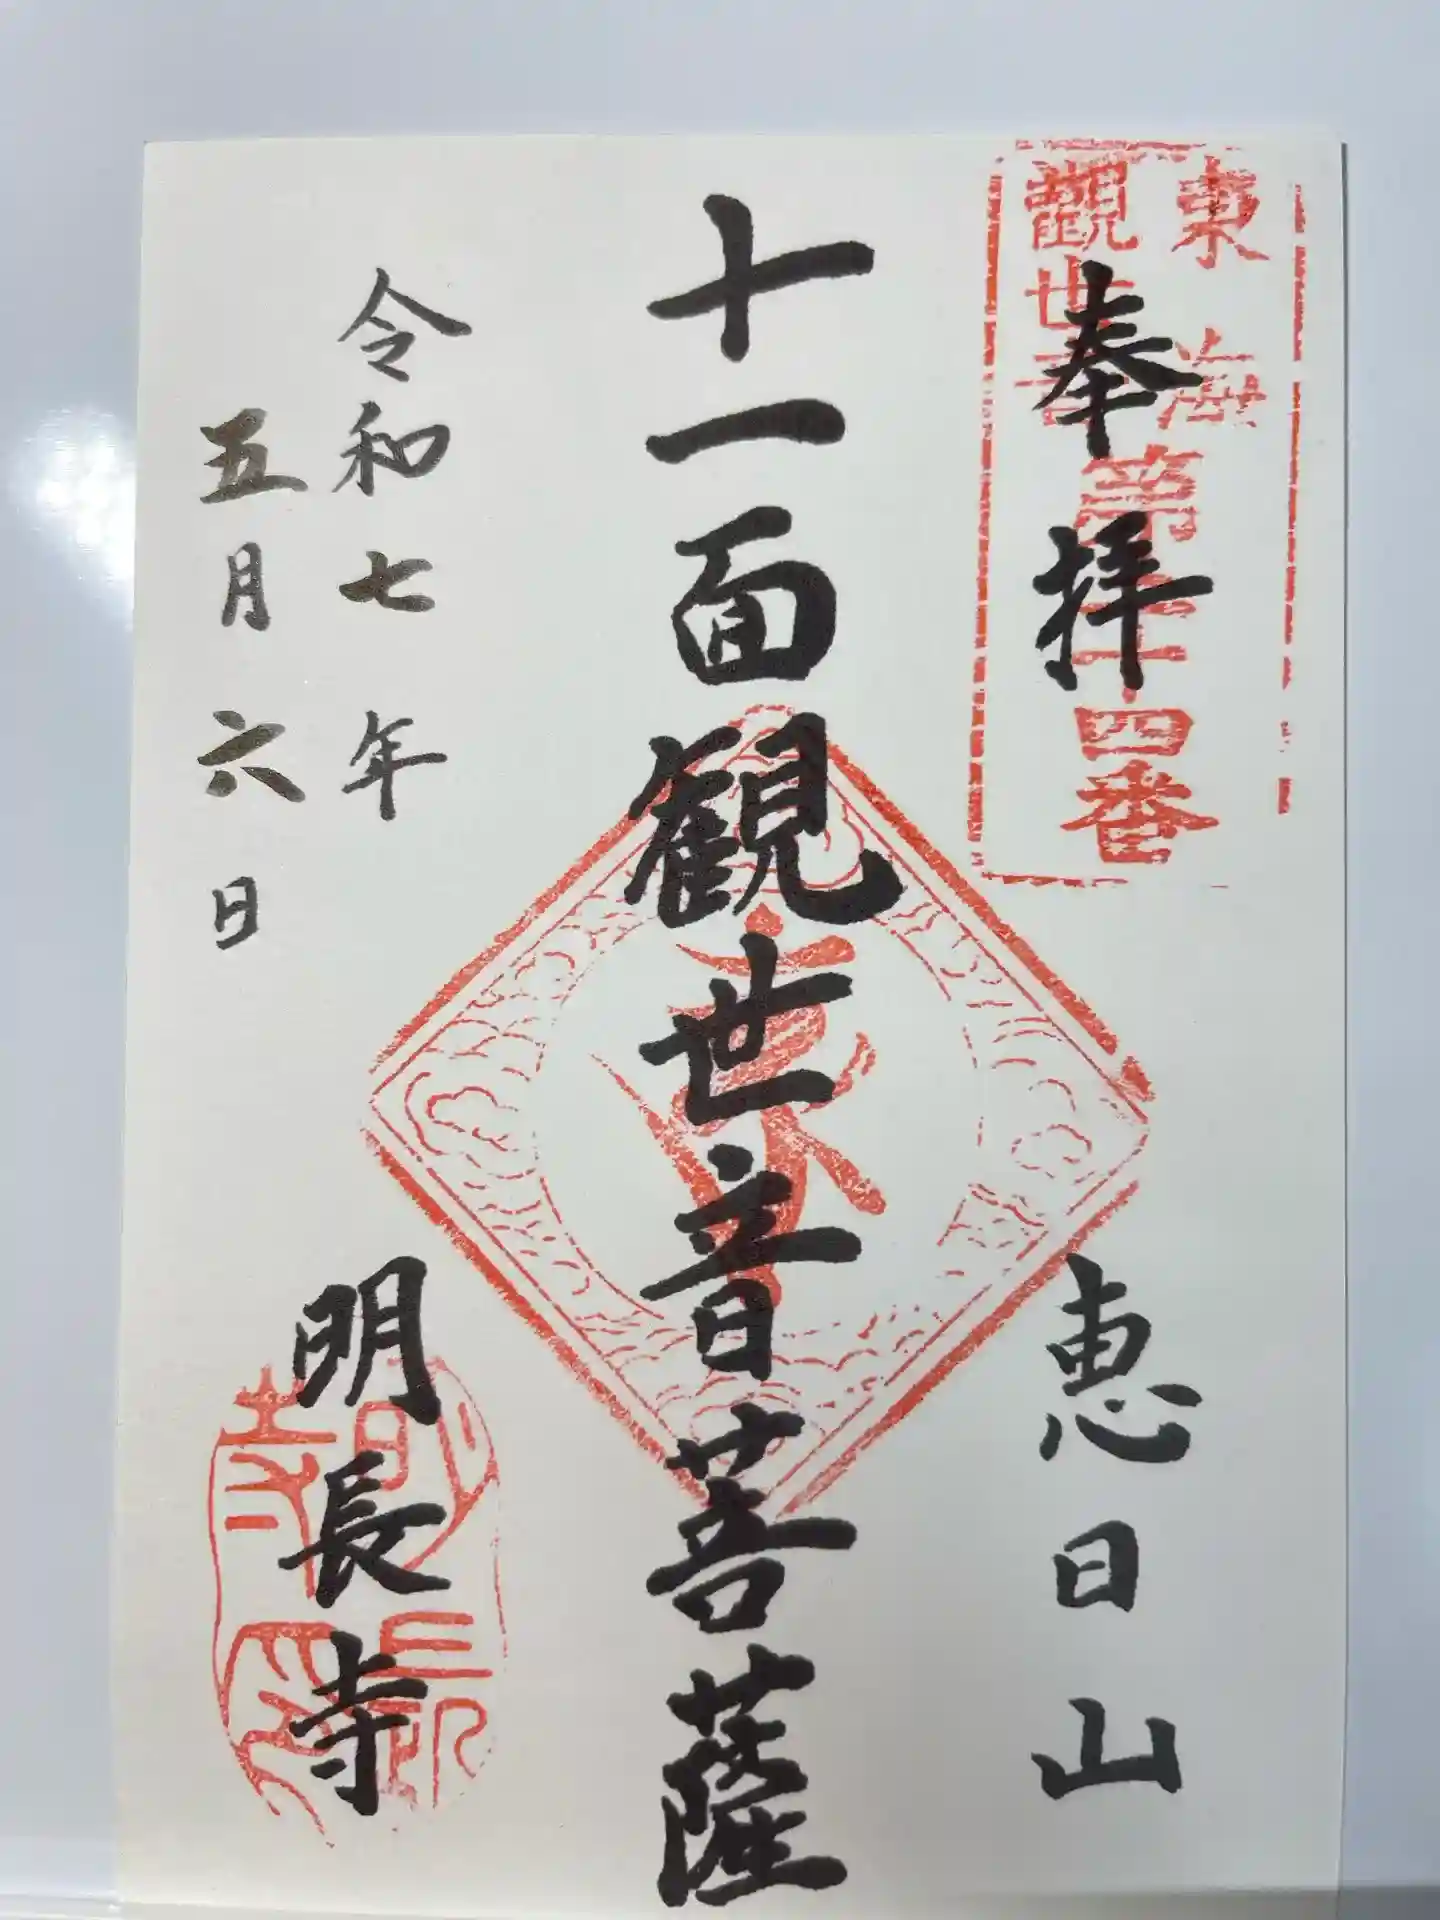 奉拝
東海
観世音
第三十四番
恵日山
十一面観世音菩薩
令和七年
五月六日
明長寺